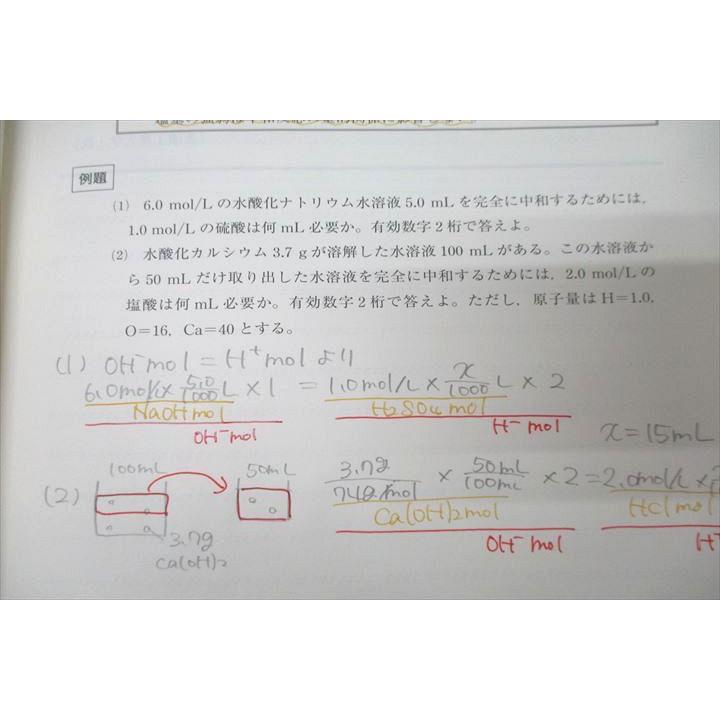 例題
(1) 6.0 mol/L の水酸化ナトリウム水溶液 5.0 mL を完全に中和するためには,
1.0 mol/L の硫酸は何 mL 必要か。有効数字 2 桁で答えよ。
(2) 水酸化カルシウム 3.7 g が溶解した水溶液 100 mL がある。この水溶液か
ら 50 mL だけ取り出した水溶液を完全に中和するためには, 2.0 mol/L の
塩酸は何 mL 必要か。有効数字 2 桁で答えよ。ただし, 原子量は H=1.0,
O=16, Ca=40 とする。
(1) OH⁻mol = H⁺mol より
6.0mol/L × 5.0/1000 L × 1 = 1.0mol/L × x/1000 L × 2
NaOHmol H₂SO₄ mol
OH⁻mol H⁻mol
x=15mL
(2) 100mL 50mL 3.7g/74g/mol × 50mL/100mL × 2 = 2.0mol/L ×
Ca(OH)₂mol HClmol
OH⁻mol H
3.7g
Ca(OH)₂